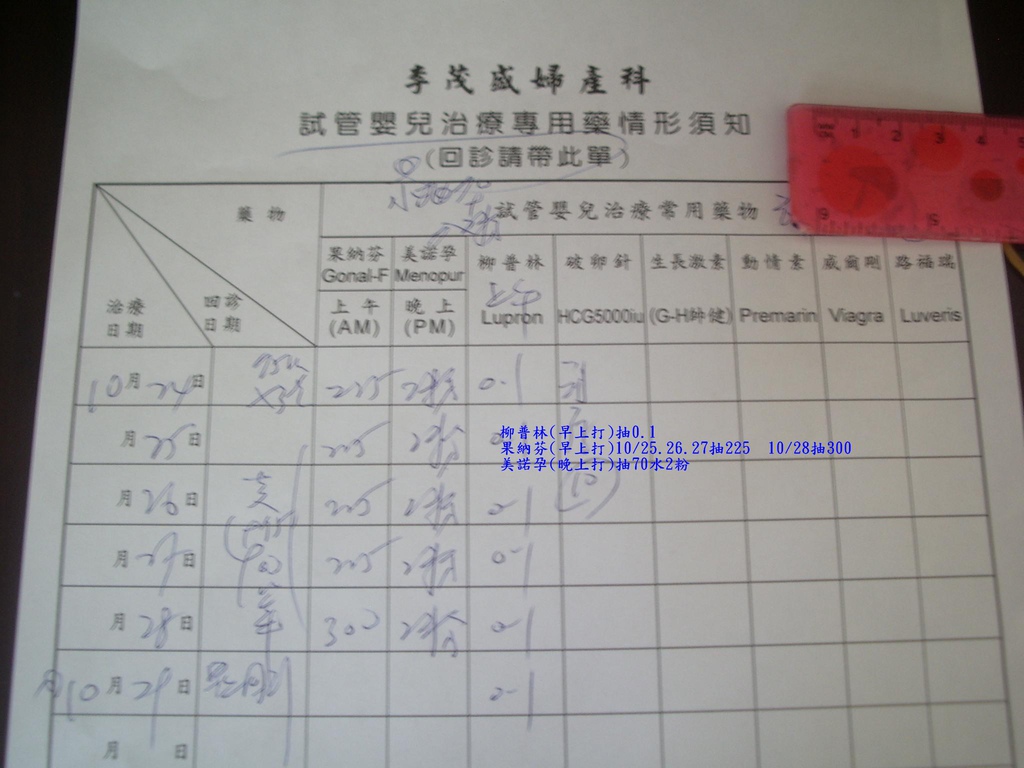 李茂盛婦產科
試管嬰兒治療專用藥情形須知
(回診請帶此單)
藥物
試管嬰兒治療常用藥物
治療日期
回診日期
果納芬 Gonal-F
美諾孕 Menopur
柳普林 Lupron
破卵針 HCG5000iu
生長激素 (G-H帥健)
動情素 Premarin
威爾剛 Viagra
路福瑞 Luveris
上午 (AM)
晚上 (PM)
上午
10月24日 225 2粉 0.1
月25日 225 2粉
柳普林(早上打)抽0.1
果納芬(早上打)10/25.26.27抽225 10/28抽300
美諾孕(晚上打)抽70水2粉
月26日 225 2粉 0.1
月27日 225 2粉 0.1
月28日 300 2粉 0.1
10月29日 0.1
月 日